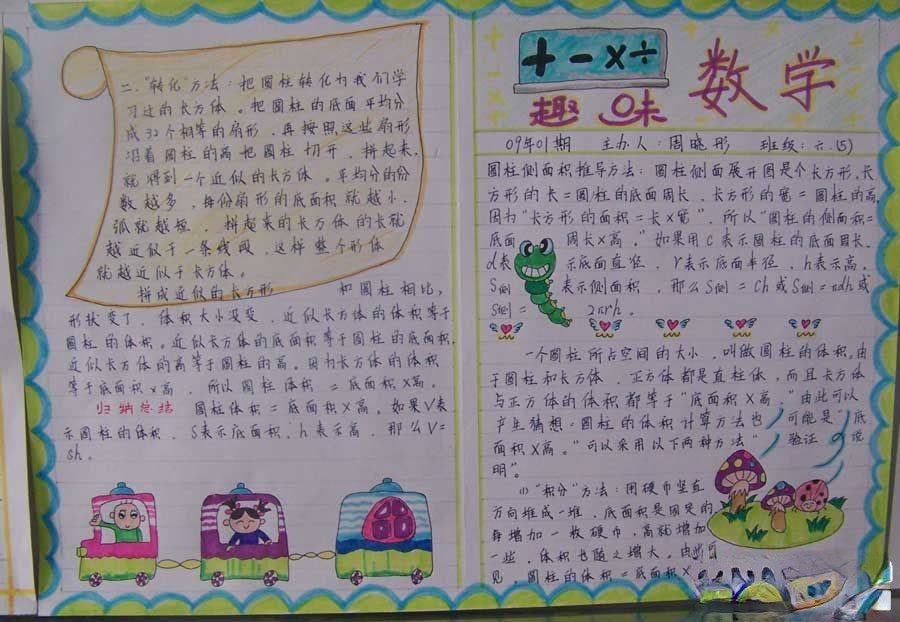 + - × ÷
趣味 数学
09年01期 主办人：周晓彤 班级：六.(5)
圆柱侧面积推导方法：圆柱侧面展开图是个长方形,长
方形的长=圆柱的底面周长，长方形的宽=圆柱的高,
因为"长方形的面积=长×宽"，所以"圆柱的侧面积=
底面 周长×高。"如果用C表示圆柱的底面周长、
d表 示底面直径，r表示底面半径，h表示高。
S侧 表示侧面积，那么S侧=Ch或S侧=πdh或
S侧= 2πrh。
一个圆柱所占空间的大小，叫做圆柱的体积。由
于圆柱和长方体、正方体都是直柱体，而且长方体
与正方体的体积都等于"底面积×高，"由此可以
产生猜想：圆柱的体积计算方法也 可能是"底
面积×高。"可以采用以下两种方法" 验证 说
明"。
(1)"积分"方法：用硬币竖直
方向堆成一堆，底面积是固定的,
每增加一枚硬币，高就增加
一些，体积也随之增大。由此可
见，圆柱的体积=底面积×
二."转化"方法：把圆柱转化为我们学
习过的长方体。把圆柱的底面平均分
成32个相等的扇形，再按照这些扇形
沿着圆柱的高把圆柱切开，拼起来,
就得到一个近似的长方体。平均分的份
数越多，每份扇形的底面积就越小.
弧就越短，拼起来的长方体的长就
越近似于一条线段，这样整个形体
就越近似于长方体。
拼成近似的长方形 和圆柱相比，
形状变了，体积大小没变 近似长方体的体积等于
圆柱的体积。近似长方体的底面积等于圆柱的底面积,
近似长方体的高等于圆柱的高。因为长方体的体积
等于底面积×高，所以圆柱体积 =底面积×高。
归纳总结 圆柱体积=底面积×高。如果V表
示圆柱的体积，S表示底面积、h表示高，那么V=
sh。